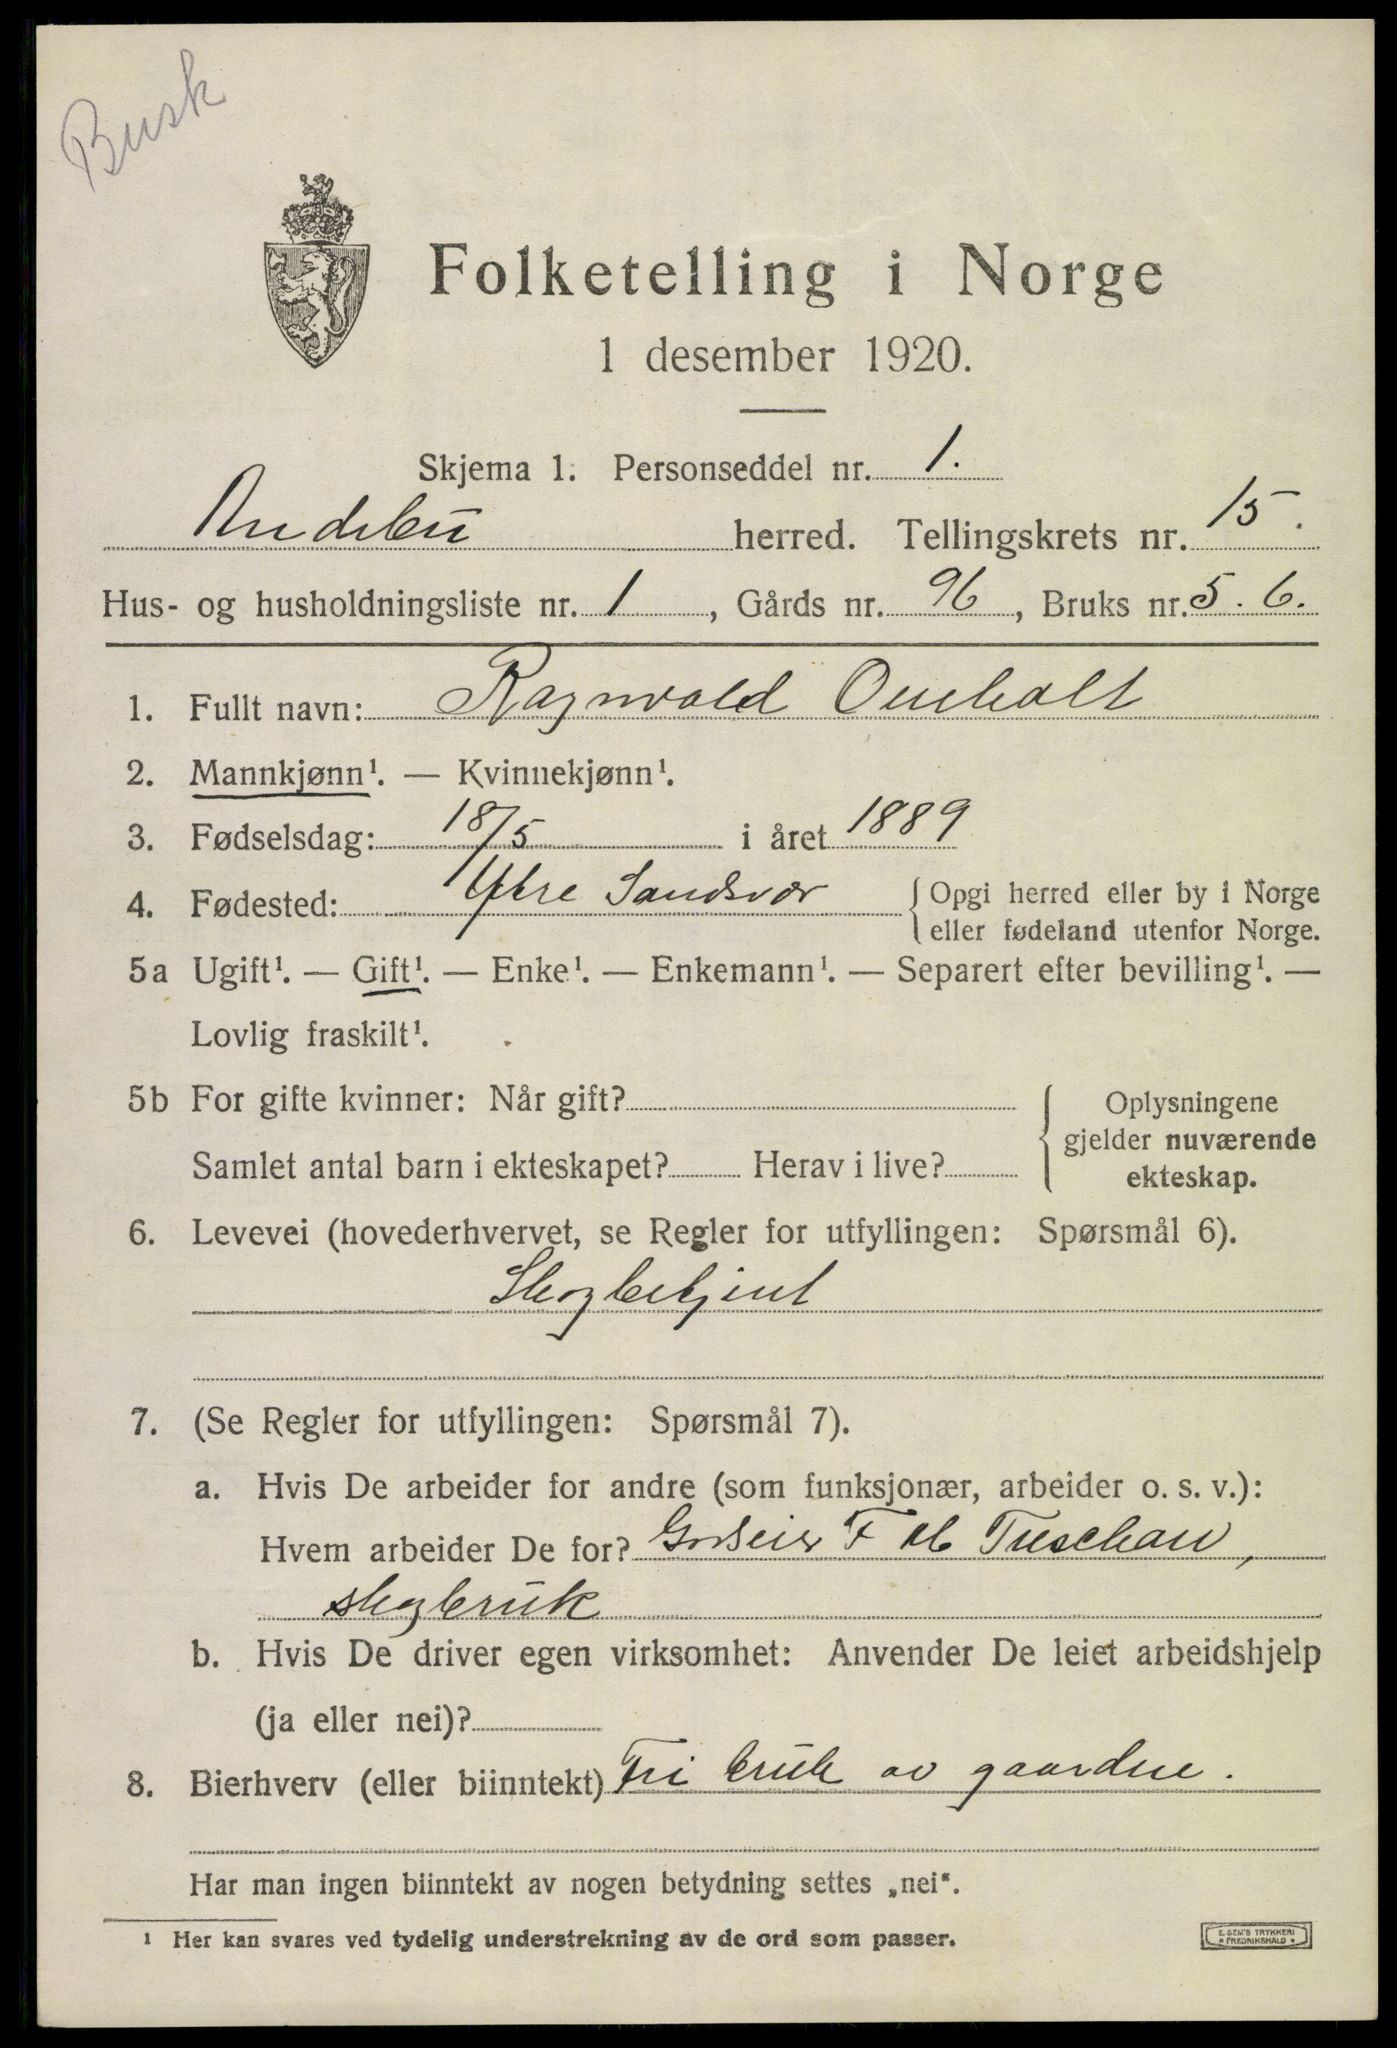 Busk
Folketelling i Norge
1 desember 1920.
Skjema 1. Personseddel nr. 1.
Andebu herred. Tellingskrets nr. 15.
Hus- og husholdningsliste nr. 1, Gårds nr. 96, Bruks nr. 5. 6.
1. Fullt navn: Ragnvald Omholt
2. Mannkjønn¹. — Kvinnekjønn¹.
3. Fødselsdag: 18/5 i året 1889
4. Fødested: Ytre Sandsvær { Opgi herred eller by i Norge
eller fødeland utenfor Norge.
5a Ugift¹. — Gift¹. — Enke¹. — Enkemann¹. — Separert efter bevilling¹. —
Lovlig fraskilt¹.
5b For gifte kvinner: Når gift? { Oplysningene
gjelder nuværende
Samlet antal barn i ekteskapet? Herav i live?
ekteskap.
6. Levevei (hovederhvervet, se Regler for utfyllingen: Spørsmål 6).
Skogbetjent
7. (Se Regler for utfyllingen: Spørsmål 7).
a. Hvis De arbeider for andre (som funksjonær, arbeider o. s. v.):
Hvem arbeider De for? Godseier F M Treschow,
skogbruk
b. Hvis De driver egen virksomhet: Anvender De leiet arbeidshjelp
(ja eller nei)?
8. Bierhverv (eller biinntekt) Fri bruk av gaardene.
Har man ingen biinntekt av nogen betydning settes „nei“.
¹ Her kan svares ved tydelig understrekning av de ord som passer.
E. SEM'S TRYKKERI
FREDRIKSHALD